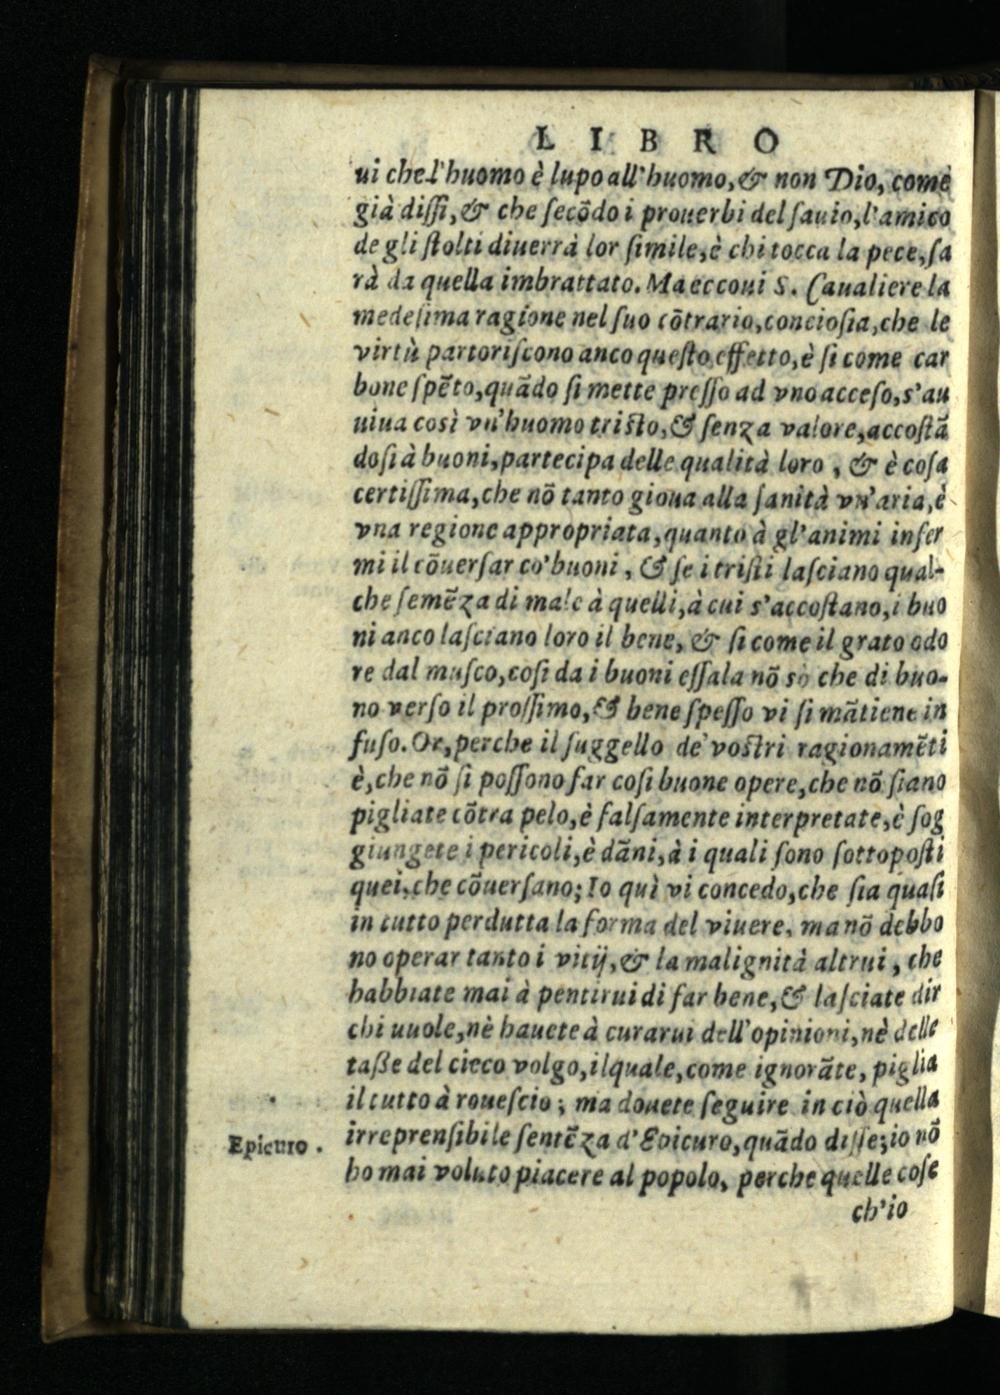 LIBRO
ui che l'huomo è lupo all'huomo, & non Dio, come
già diſſi, & che ſecõdo i prouerbi del ſauio, l'amico
de gli ſtolti diuerrà lor ſimile, è chi tocca la pece, ſa
rà da quella imbrattato. Ma eccoui S. Caualiere la
medeſima ragione nel ſuo cõtrario, concioſia, che le
virtù partoriſcono anco queſto effetto, è ſi come car
bone ſpẽto, quãdo ſi mette preſſo ad vno acceſo, s'au
uiua così vn'huomo triſto, & ſenza valore, accoſtã
doſi à buoni, partecipa delle qualità loro, & è coſa
certiſſima, che nõ tanto gioua alla ſanità vn'aria, è
vna regione appropriata, quanto à gl'animi infer
mi il cõuerſar co'buoni, & ſe i triſti laſciano qual-
che ſemẽza di male à quelli, à cui s'accoſtano, i buo
ni anco laſciano loro il bene, & ſi come il grato odo
re dal muſco, coſi da i buoni eſſala nõ so che di buo-
no verſo il proſſimo, & bene ſpeſſo vi ſi mãtiene in
fuſo. Or, perche il ſuggello de'voſtri ragionamẽti
è, che nõ ſi poſſono far coſi buone opere, che nõ ſiano
pigliate cõtra pelo, è falſamente interpretate, è ſog
giungete i pericoli, è dãni, à i quali ſono ſottopoſti
quei, che cõuerſano; Io quì vi concedo, che ſia quaſi
in tutto perdutta la forma del viuere, ma nõ debbo
no operar tanto i vitij, & la malignità altrui, che
habbiate mai à pentirui di far bene, & laſciate dir
chi uuole, nè hauete à curarui dell'opinioni, nè delle
taße del cieco volgo, ilquale, come ignorãte, piglia
il tutto à roueſcio; ma douete ſeguire in ciò quella
Epicuro.
irreprenſibile ſentẽza d'Epicuro, quãdo diſſe; io nõ
ho mai voluto piacere al popolo, perche quelle coſe
ch'io